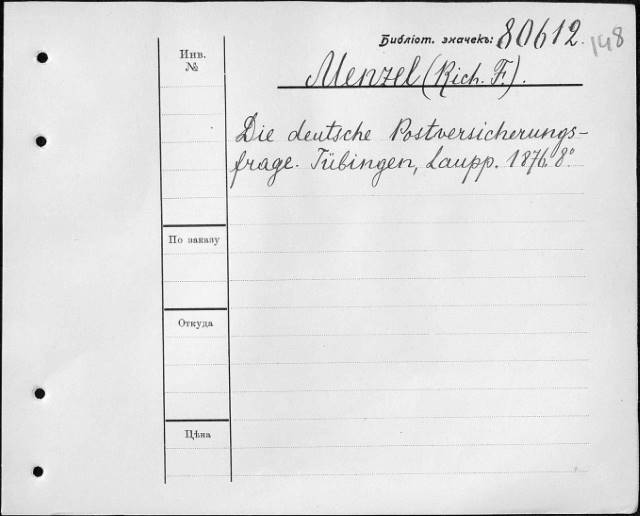 Библіот. значекъ: 80612. 148
Инв.
№
Menzel (Rich. F.).
Die deutsche Postversicherungs-
frage. Tübingen, Laupp. 1876. 8°.
По заказу
Откуда
Цѣна